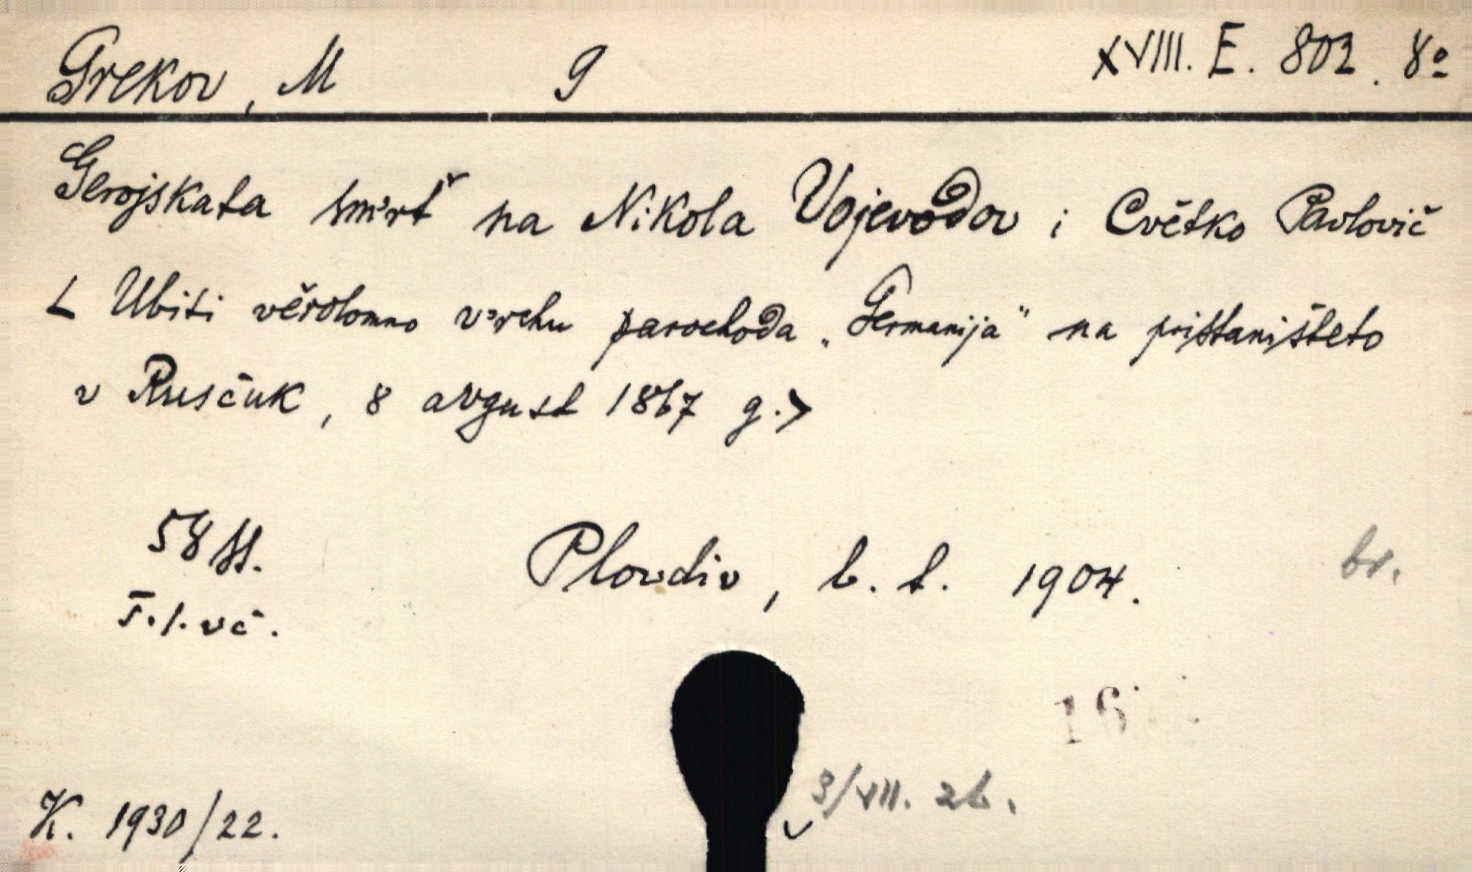 Grekov, M 9 XVIII. E. 802. 8º
Gerojskata smьrtь na Nikola Vojevodov i Cvětko Pavlovič
< Ubiti věrolomno vъrchu parochoda „Germanija" na pristaništeto
v Rusčuk, 8 avgust 1867 g.>
58 ss.
Plovdiv, b. t. 1904.
br.
T. s. vč.
16
3/VII. 26.
K. 1930/22.